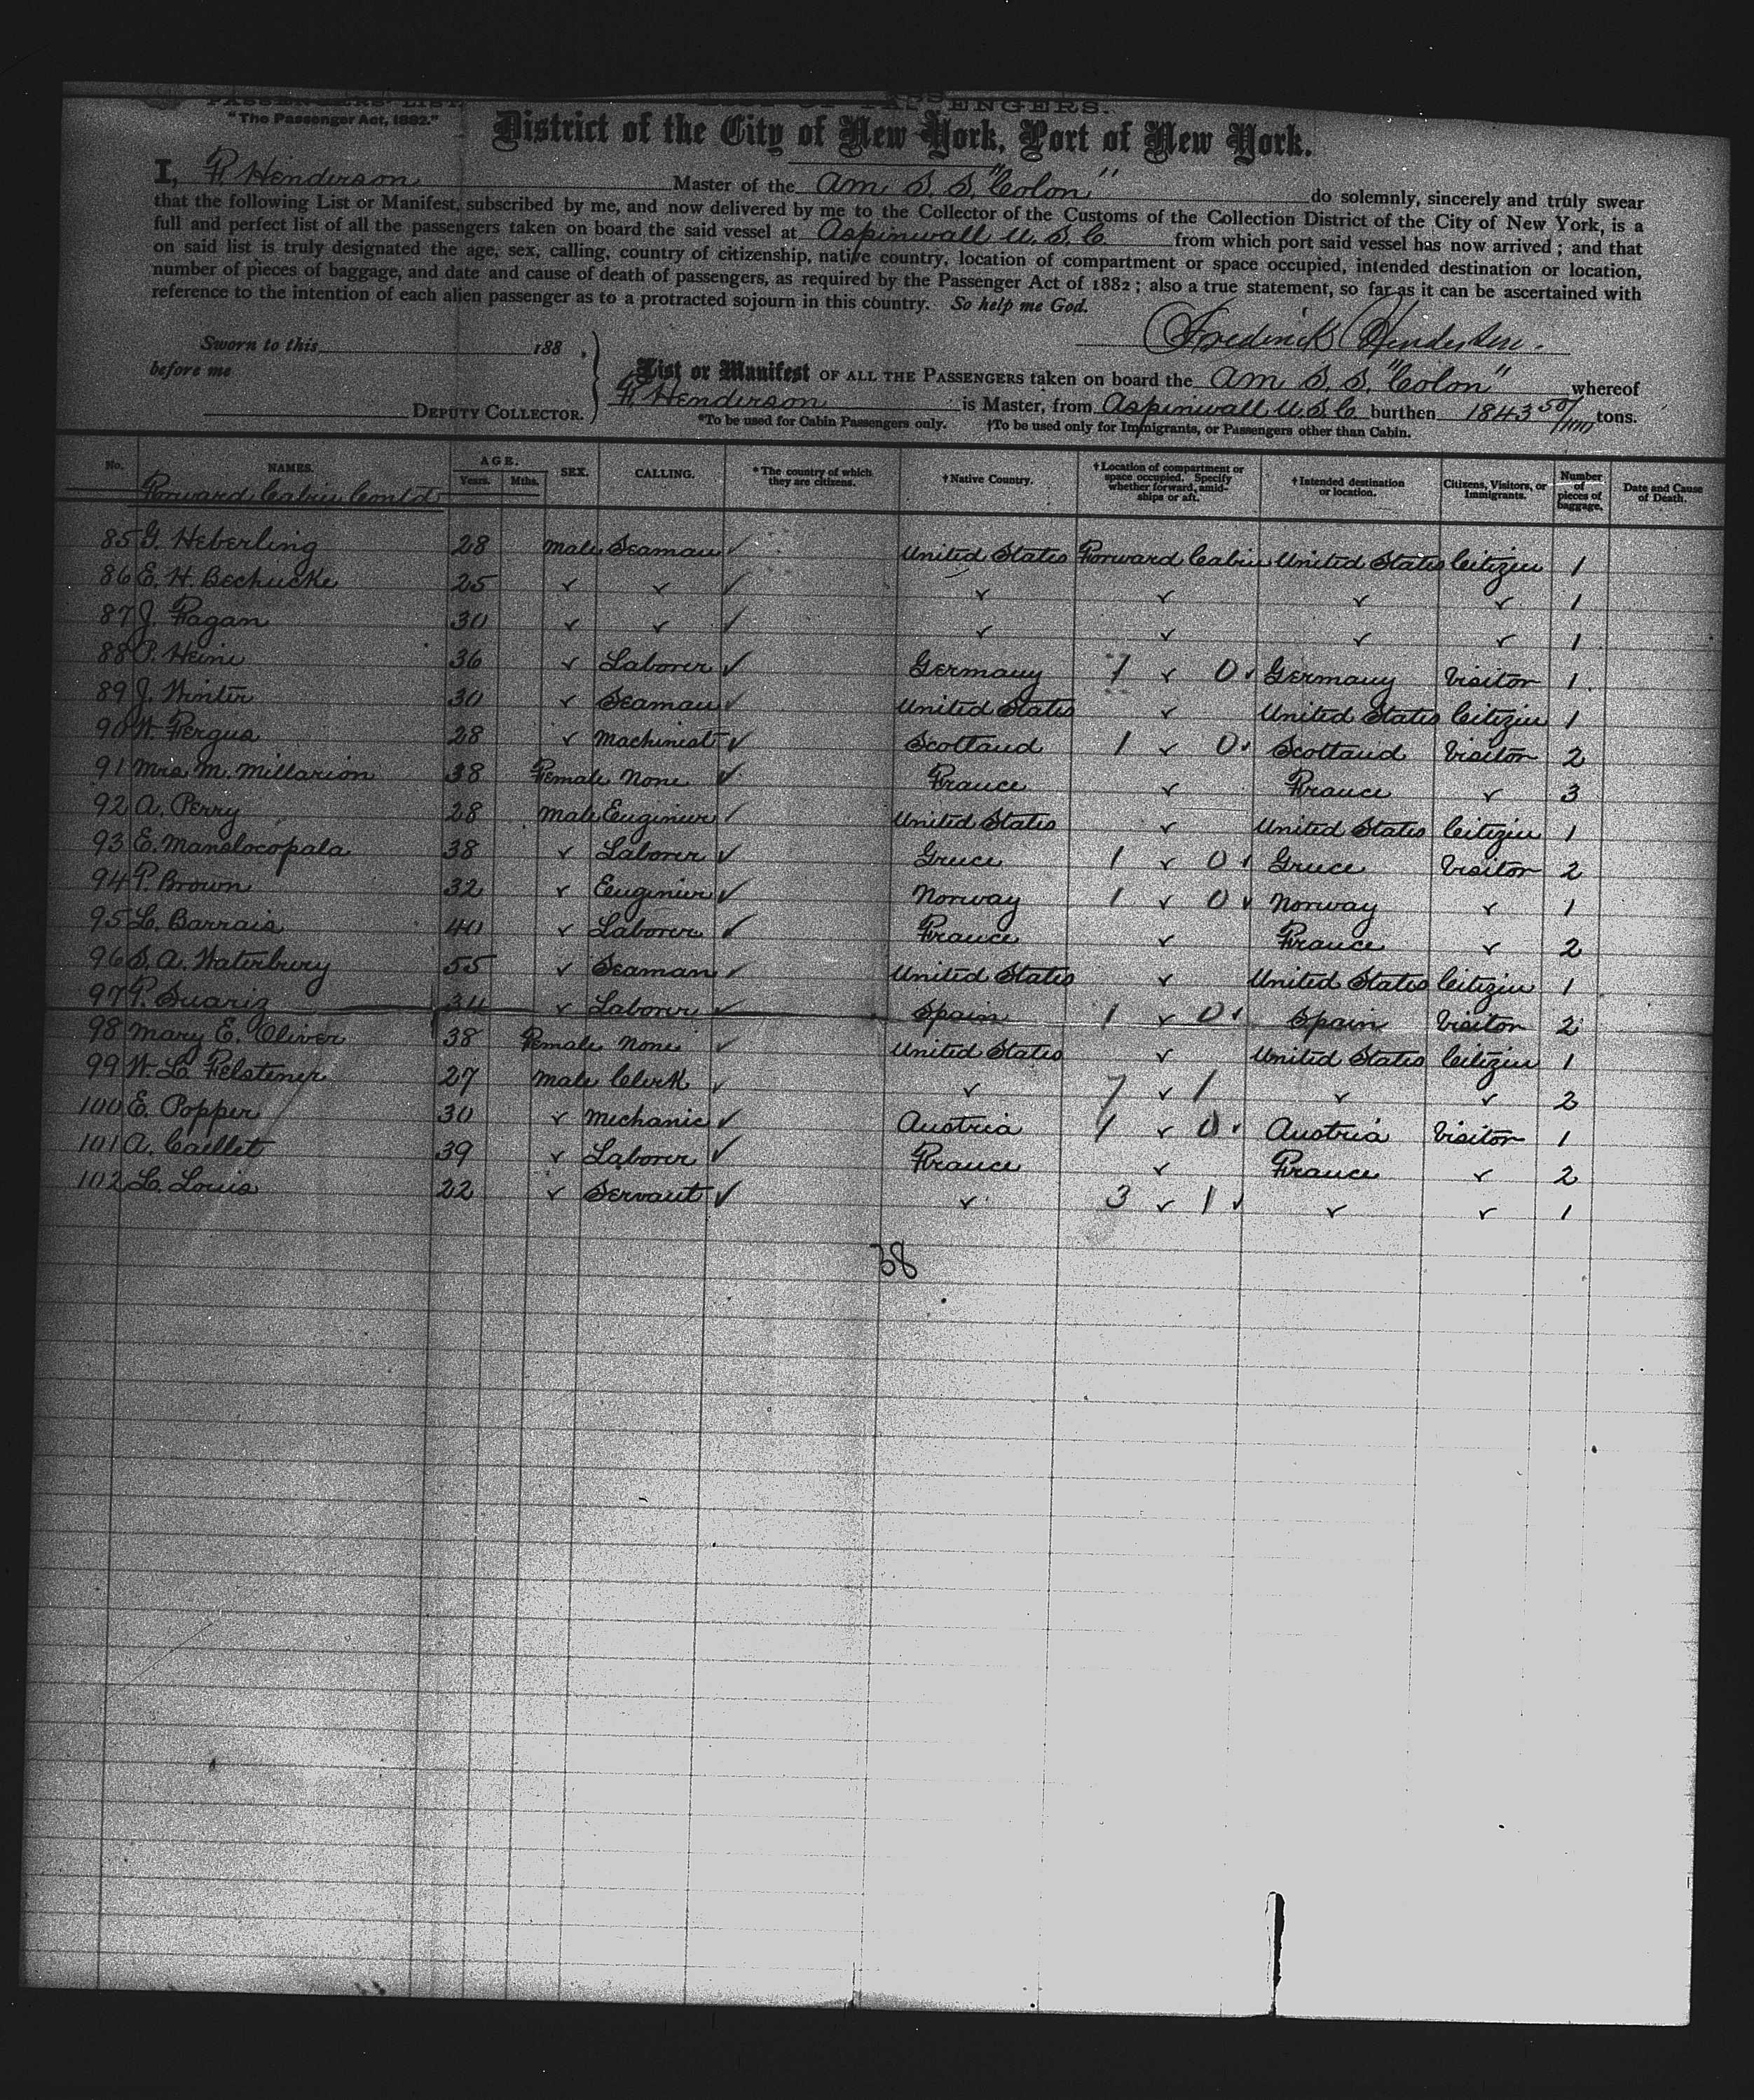 PASSENGERS' LIST. LIST OF PASSENGERS.
"The Passenger Act, 1882."
District of the City of New York, Port of New York.
I, F. Henderson Master of the Am. S. S. "Colon" do solemnly, sincerely and truly swear
that the following List or Manifest, subscribed by me, and now delivered by me to the Collector of the Customs of the Collection District of the City of New York, is a
full and perfect list of all the passengers taken on board the said vessel at Aspinwall U. S. C. from which port said vessel has now arrived; and that
on said list is truly designated the age, sex, calling, country of citizenship, native country, location of compartment or space occupied, intended destination or location,
number of pieces of baggage, and date and cause of death of passengers, as required by the Passenger Act of 1882; also a true statement, so far as it can be ascertained with
reference to the intention of each alien passenger as to a protracted sojourn in this country. So help me God.
Frederick Henderson.
Sworn to this 188 .
before me
DEPUTY COLLECTOR.
List or Manifest OF ALL THE PASSENGERS taken on board the Am S. S. "Colon" whereof
F. Henderson is Master, from Aspinwall U.S.C burthen 1843 50/100 tons.
*To be used for Cabin Passengers only. †To be used only for Immigrants, or Passengers other than Cabin.
No. NAMES. AGE. Years. Mths. SEX. CALLING. * The country of which they are citizens. † Native Country. † Location of compartment or space occupied. Specify whether forward, amidships or aft. † Intended destination or location. Citizens, Visitors, or Immigrants. Number of pieces of baggage. Date and Cause of Death.
Forward Cabin Cont'd
85 G. Heberling 28 Male Seaman ✓ United States Forward Cabin United States Citizen 1
86 E. H. Bechucke 25 ✓ ✓ ✓ ✓ ✓ ✓ ✓ 1
87 J. Fagan 30 ✓ ✓ ✓ ✓ ✓ ✓ ✓ 1
88 P. Heine 36 ✓ Laborer ✓ Germany 1 ✓ 0 ✓ Germany Visitor 1
89 J. Winter 30 ✓ Seaman ✓ United States ✓ United States Citizen 1
90 W. Fergus 28 ✓ Machinist ✓ Scotland 1 ✓ 0 Scotland Visitor 2
91 Mrs M. Millarion 38 Female None ✓ France ✓ France ✓ 3
92 A. Perry 28 Male Engineer ✓ United States ✓ United States Citizen 1
93 E. Manolocopala 38 ✓ Laborer ✓ Greece 1 ✓ 0 ✓ Greece Visitor 2
94 P. Brown 32 ✓ Engineer ✓ Norway 1 ✓ 0 ✓ Norway ✓ 1
95 L. Barrais 40 ✓ Laborer ✓ France ✓ France ✓ 2
96 S. A. Waterbury 55 ✓ Seaman ✓ United States ✓ United States Citizen 1
97 P. Suariz 34 ✓ Laborer ✓ Spain 1 ✓ 0 ✓ Spain Visitor 2
98 Mary E. Oliver 38 Female None ✓ United States ✓ United States Citizen 1
99 W. L. Felstiner 27 Male Clerk ✓ ✓ 7 ✓ 1 ✓ ✓ 2
100 E. Popper 30 ✓ Mechanic ✓ Austria 1 ✓ 0 ✓ Austria Visitor 1
101 A. Caillet 39 ✓ Laborer ✓ France ✓ France ✓ 2
102 L. Louis 22 ✓ Servant ✓ ✓ 3 ✓ 1 ✓ ✓ ✓ 1
38